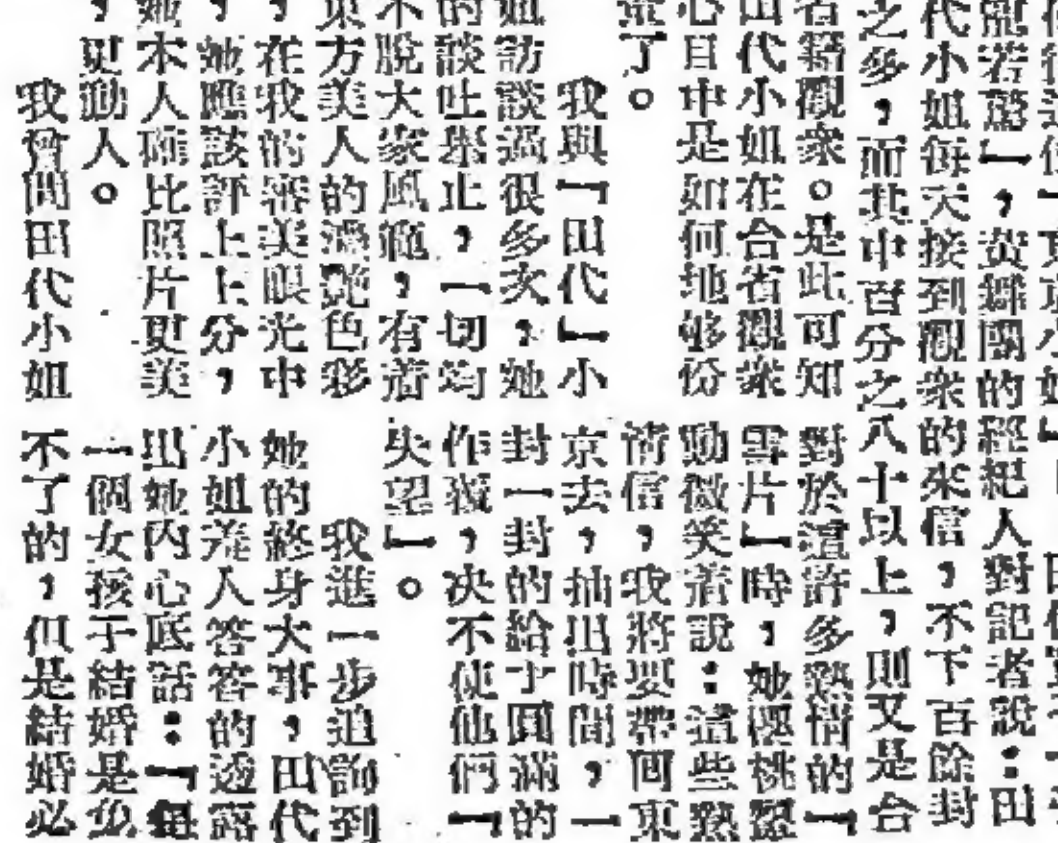 寵若驚」，故舞團的經紀人對記者說：田
代小姐每天接到觀衆的來信，不下百餘封
之多，而其中百分之八十以上，則又是合
省籍觀衆。是此可知
田代小姐在合省觀衆
心目中是如何地够份
量了。
我與「田代」小
姐訪談過很多次，她
的談吐舉止，一切均
不脫大家風範，有着
東方美人的濃艷色彩
，在我的審美眼光中
，她應該評上上分，
她本人確比照片更美
，更動人。
我曾問田代小姐
對於這許多熱情的「
雪片」時，她極桃靨
動微笑着說：這些熱
情信，我將要帶回東
京去，抽出時間，一
封一封的給予圓滿的
作覆，决不使他們「
失望」。
我進一步追詢到
她的終身大事，田代
小姐羞人答答的透露
出她內心底話：「每
一個女孩子結婚是免
不了的，但是結婚必